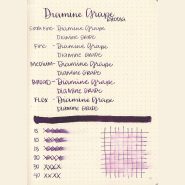 Diamine Grape
EXTRA FINE - Diamine Grape
DIAMINE GRAPE
FINE - Diamine Grape
DIAMINE GRAPE
MEDIUM - Diamine Grape
DIAMINE GRAPE
BROAD - Diamine Grape
DIAMINE GRAPE
FLEX - Diamine Grape
DIAMINE GRAPE
10 XXXXX
15 XXXXX
20 XXXXX
30 XXXX
40 XXXX